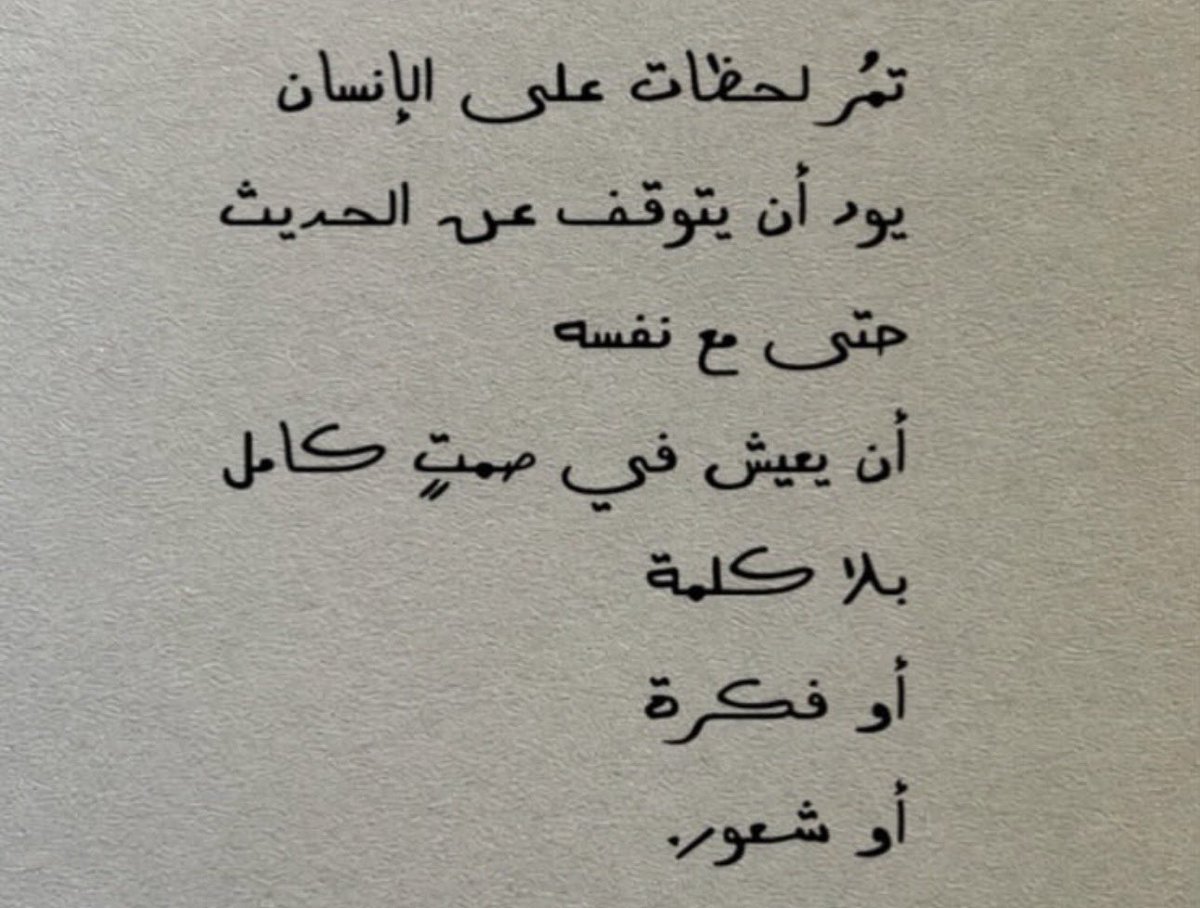 تمُر لحظات على الإنسان
يود أن يتوقف عن الحديث
حتى مع نفسه
أن يعيش في صمتٍ كامل
بلا كلمة
أو فكرة
أو شعور.